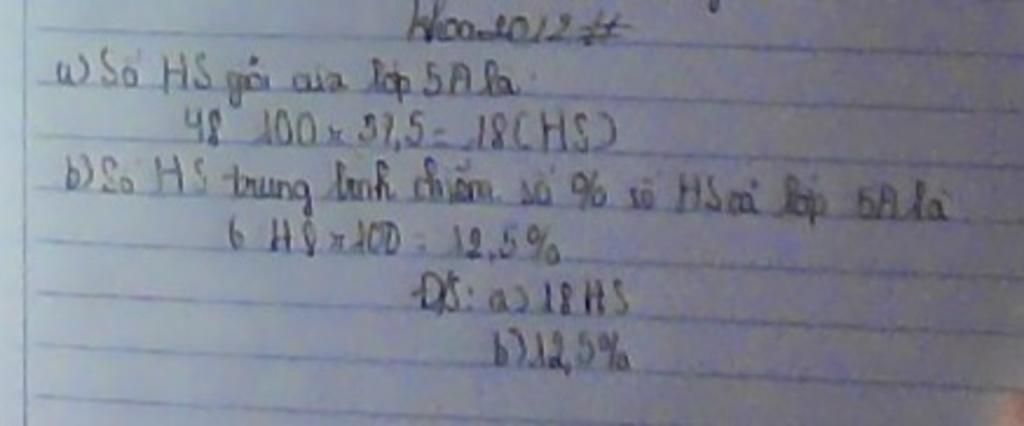 a) Số HS giỏi của lớp 5A là:
48 100 x 37,5 = 18 (HS)
b) Số HS trung bình chiếm số % số HS cả lớp 5A là
6 48 x 100 = 12,5%
ĐS: a) 18 HS
b) 12,5%